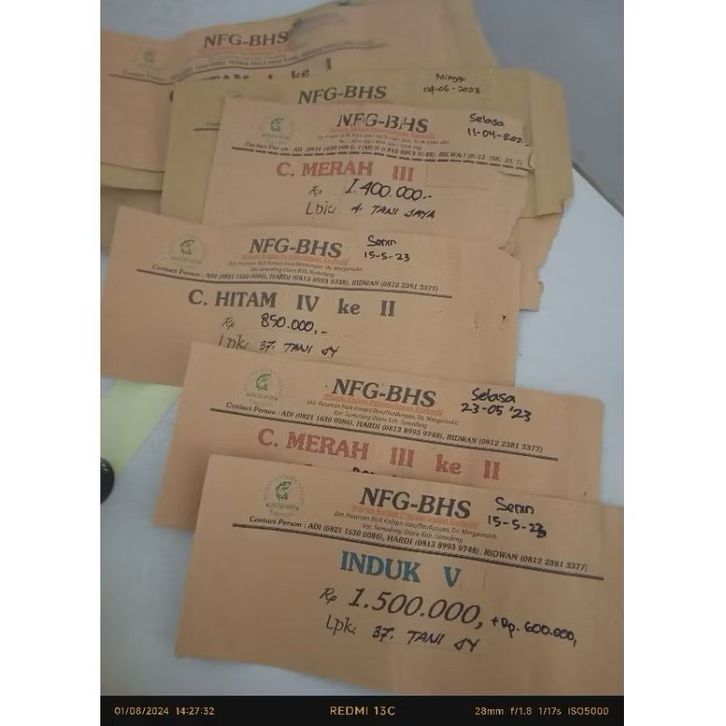 NFG-BHS
I ke I
NFG-BHS
Minggu
04-06-2023
NFG-BHS
Selasa
11-04-202
C. MERAH III
Rp 1.400.000,-
Lpk: 4 TANI JAYA
NFG-BHS
Senin
15-5-23
Contact Person : ADI (0821 1630 0086), HARDI (0813 8993 9748), RIDWAN (0812 2381 3377)
C. HITAM IV ke II
Rp 850.000,-
Lpk: 37. TANI JY
NFG-BHS
Selasa
23-05 '23
Contact Person : ADI (0821 1630 0086), HARDI (0813 8993 9748), RIDWAN (0812 2381 3377)
C. MERAH III ke II
NFG-BHS
Senin
15-5-23
Contact Person : ADI (0821 1630 0086), HARDI (0813 8993 9748), RIDWAN (0812 2381 3377)
INDUK V
Rp 1.500.000, +Rp. 600.000,
Lpk: 37. TANI JY
01/08/2024 14:27:32
REDMI 13C
28mm f/1.8 1/17s ISO5000